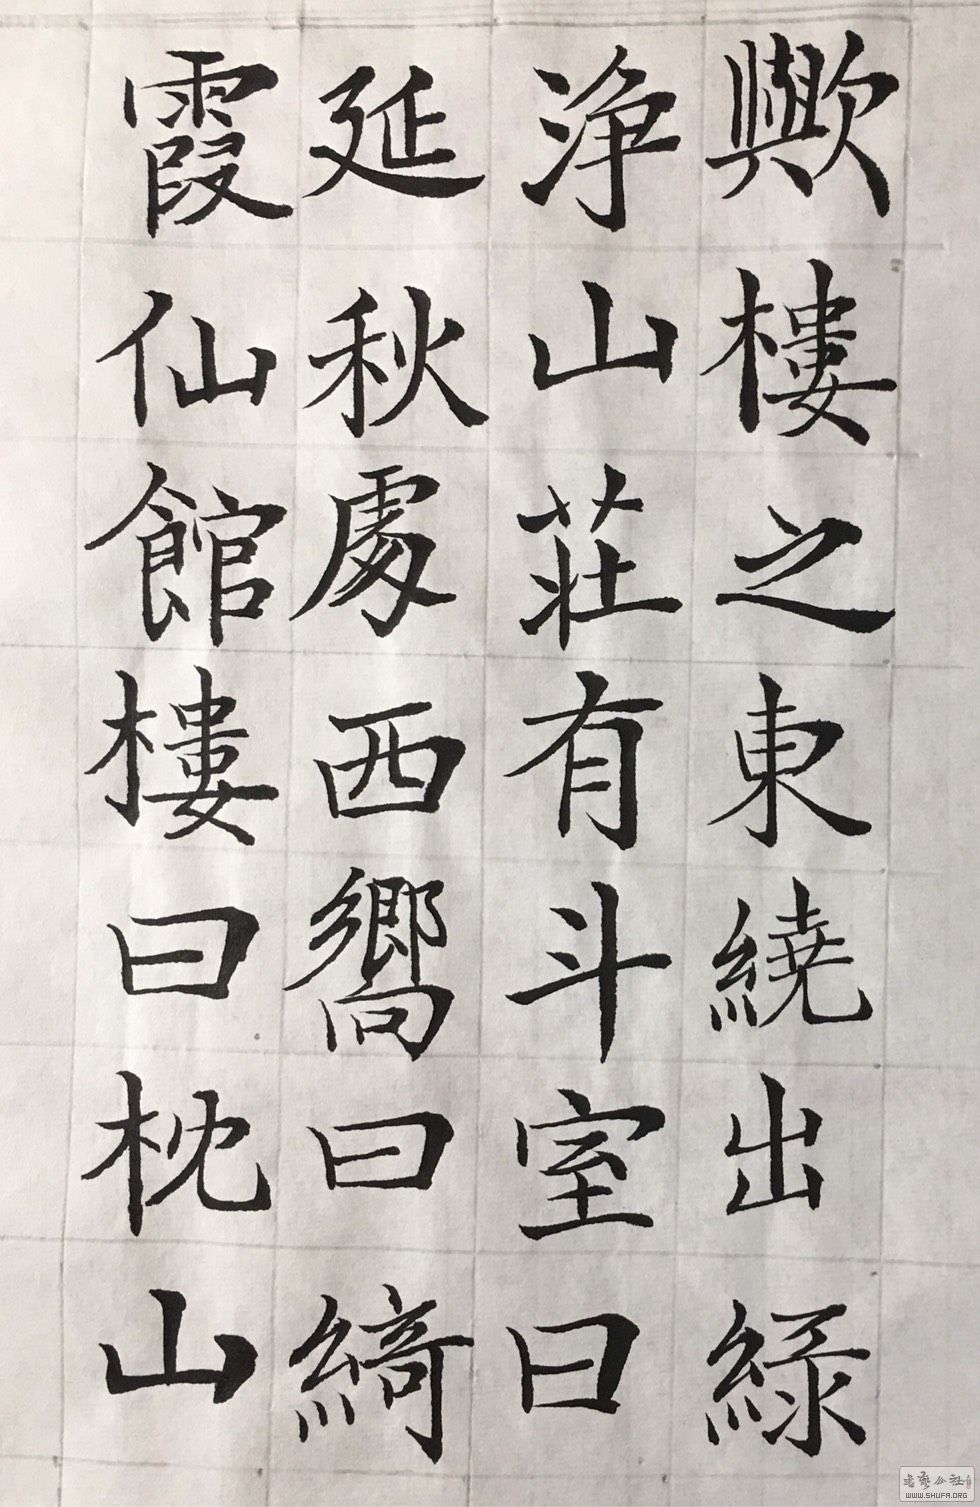 歟樓之東繞出緑
浄山莊有斗室曰
延秋處西嚮曰綺
霞仙館樓曰枕山
書藝公社
WWW.SHUFA.ORG